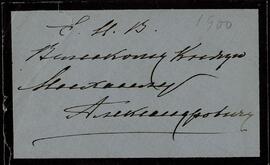 Е. И. В.
1900
Великому Князю
Михаилу
Александровичу